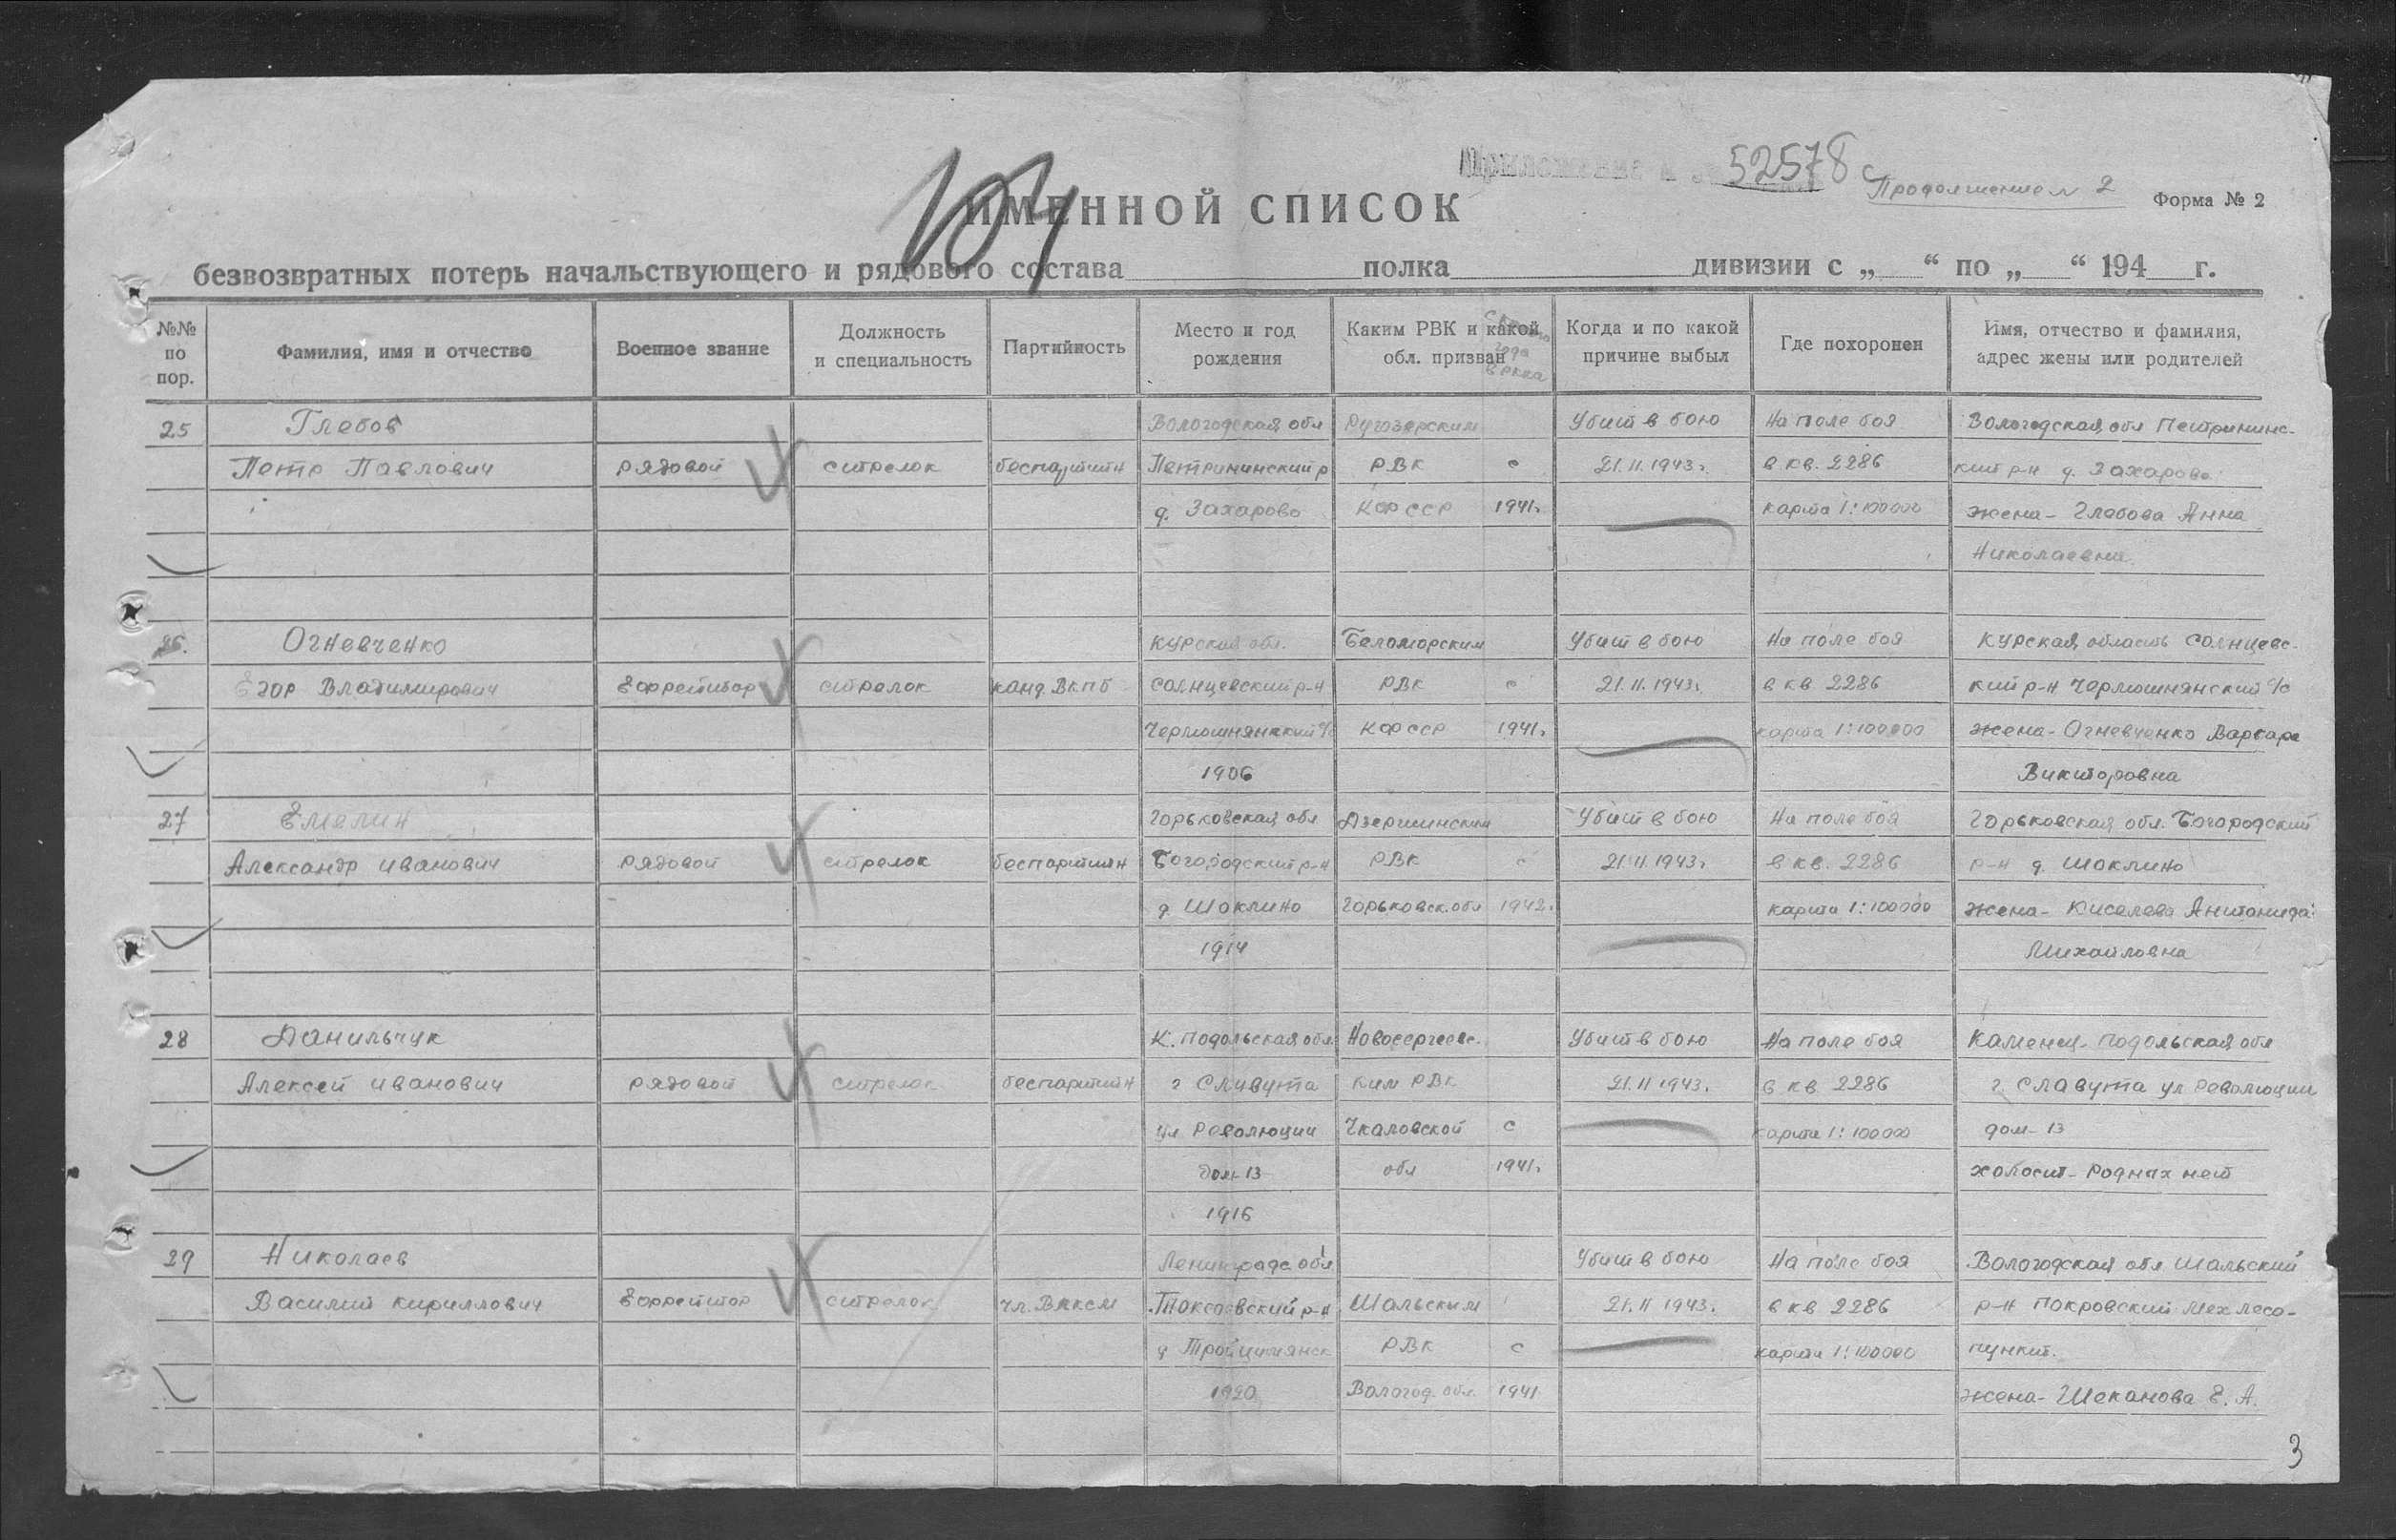 Приложение к № 52578 с
Продолжение № 2
Форма № 2
104
ИМЕННОЙ СПИСОК
безвозвратных потерь начальствующего и рядового состава полка дивизии с „ “ по „ “ 194 г.
№№ по пор.
Фамилия, имя и отчество
Военное звание
Должность и специальность
Партийность
Место и год рождения
Каким РВК и какой обл. призван
С какого года в РККА
Когда и по какой причине выбыл
Где похоронен
Имя, отчество и фамилия, адрес жены или родителей
25 Глебов Вологодская обл Ругозерским Убит в бою На поле боя Вологодская обл Петрининс-
Петр Павлович рядовой стрелок беспартийн Петрининский р РВК с 21.11.1943г. в кв. 2286 кий р-н д. Захарово
д. Захарово КФССР 1941г. карта 1:100000 жена - Глебова Анна
Николаевна
26. Огневченко Курская обл. Беломорским Убит в бою На поле боя Курская область Солнцевс-
Егор Владимирович Ефрейтор стрелок канд. ВКПб Солнцевский р-н РВК с 21.11.1943г. в кв 2286 кий р-н Чермошнянский с/с
Чермошнянский с/с КФССР 1941г. карта 1:100000 жена - Огневченко Варвара
1906 Викторовна
27 Емелин Горьковская обл Дзержинским Убит в бою На поле боя Горьковская обл. Богородский
Александр Иванович рядовой стрелок беспартийн Богородский р-н РВК с 21.11.1943г. в кв. 2286 р-н д. Шоклино
д Шоклино Горьковск.обл 1942г. карта 1:100000 жена - Киселева Антонида
1914 Михайловна
28 Данильчук К. Подольская обл. Новосергеевс- Убит в бою На поле боя Каменец-Подольская обл
Алексей Иванович рядовой стрелок беспартийн г Славута ким РВК 21.11.1943г. в кв 2286 г. Славута ул Революции
ул Революции Чкаловской с карта 1:100000 дом-13
дом-13 обл 1941г. холост - родных нет
1916
29 Николаев Ленинградс обл Убит в бою На поле боя Вологодская обл Шальский
Василий Кириллович Ефрейтор стрелок чл. ВЛКСМ р-н Шальским 21.11.1943г. в кв 2286 р-н Покровский Мехлесо-
д РВК с карта 1:100000 пункт.
1920 Вологод. обл. 1941 жена - Шеканова Е. А.
3